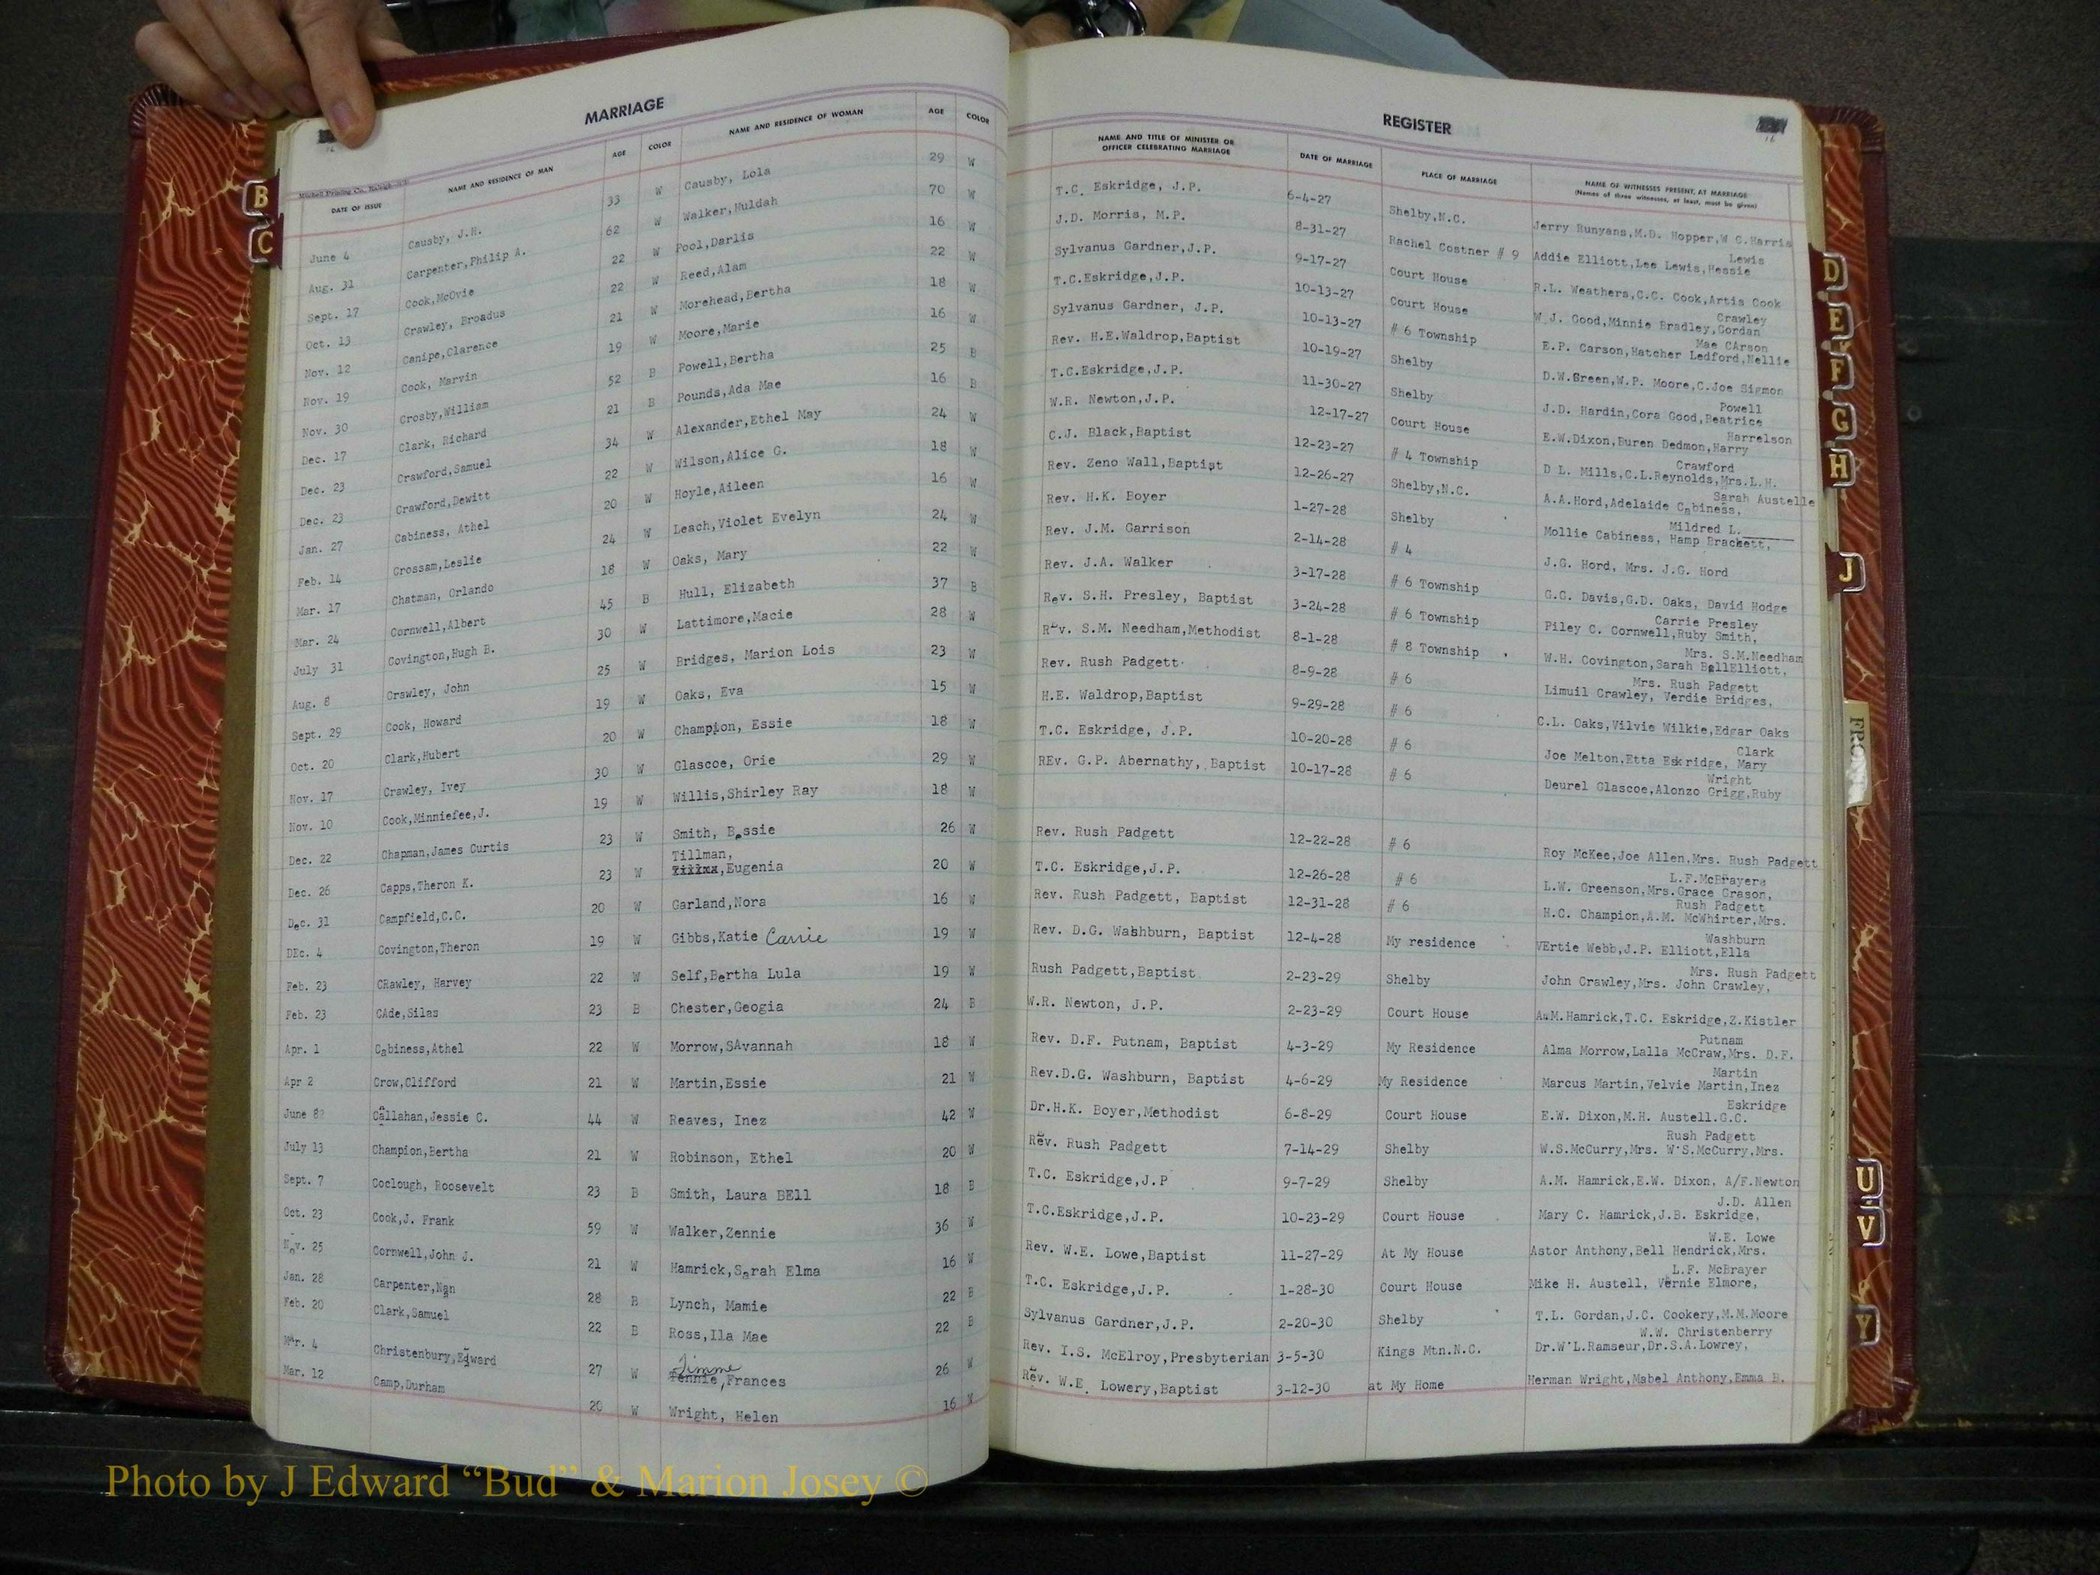 MARRIAGE
16
Mitchell Printing Co., Raleigh
DATE OF ISSUE NAME AND RESIDENCE OF MAN AGE COLOR NAME AND RESIDENCE OF WOMAN AGE COLOR
June 4 Causby, J.H. 33 W Causby, Lola 29 W
Aug. 31 Carpenter,Philip A. 62 W Walker,Huldah 70 W
Sept. 17 Cook,McOvie 22 W Pool,Darlis 16 W
Oct. 13 Crawley, Broadus 22 W Reed,Alam 22 W
Nov. 12 Canipe,Clarence 21 W Morehead,Bertha 18 W
Nov. 19 Cook, Marvin 19 W Moore,Marie 16 W
Nov. 30 Crosby,William 52 B Powell,Bertha 25 B
Dec. 17 Clark, Richard 21 B Pounds,Ada Mae 16 B
Dec. 23 Crawford,Samuel 34 W Alexander,Ethel May 24 W
Dec. 23 Crawford,Dewitt 22 W Wilson,Alice G. 18 W
Jan. 27 Cabiness, Athel 20 W Hoyle,Aileen 16 W
Feb. 14 Crossam,Leslie 24 W Leach,Violet Evelyn 24 W
Mar. 17 Chatman, Orlando 18 W Oaks, Mary 22 W
Mar. 24 Cornwell,Albert 45 B Hull, Elizabeth 37 B
July 31 Covington,Hugh B. 30 W Lattimore,Macie 28 W
Aug. 8 Crawley, John 25 W Bridges, Marion Lois 23 W
Sept. 29 Cook, Howard 19 W Oaks, Eva 15 W
Oct. 20 Clark,Hubert 20 W Champion, Essie 18 W
Nov. 17 Crawley, Ivey 30 W Glascoe, Orie 29 W
Nov. 10 Cook,Minniefee,J. 19 W Willis,Shirley Ray 18 W
Dec. 22 Chapman,James Curtis 23 W Smith, Bessie 26 W
Tillman,
Dec. 26 Capps,Theron K. 23 W ,Eugenia 20 W
Dec. 31 Campfield,C.C. 20 W Garland,Nora 16 W
DEc. 4 Covington,Theron 19 W Gibbs,Katie Carrie 19 W
Feb. 23 CRawley, Harvey 22 W Self,Bertha Lula 19 W
Feb. 23 CAde,Silas 23 B Chester,Geogia 24 B
Apr. 1 Cabiness,Athel 22 W Morrow,SAvannah 18 W
Apr 2 Crow,Clifford 21 W Martin,Essie 21 W
June 8 Callahan,Jessie C. 44 W Reaves, Inez 42 W
July 13 Champion,Bertha 21 W Robinson, Ethel 20 W
Sept. 7 Coclough, Roosevelt 23 B Smith, Laura BEll 18 B
Oct. 23 Cook,J. Frank 59 W Walker,Zennie 36 W
Nov. 25 Cornwell,John J. 21 W Hamrick,Sarah Elma 16 W
Jan. 28 Carpenter,Nan 28 B Lynch, Mamie 22 B
Feb. 20 Clark,Samuel 22 B Ross,Ila Mae 22 B
Timme
Mar. 4 Christenbury,Edward 27 W Tennie,Frances 26 W
Mar. 12 Camp,Durham 20 W Wright, Helen 16 W
REGISTER
16
NAME AND TITLE OF MINISTER OR OFFICER CELEBRATING MARRIAGE DATE OF MARRIAGE PLACE OF MARRIAGE NAME OF WITNESSES PRESENT, AT MARRIAGE
(Names of three witnesses, at least, must be given)
T.C. Eskridge, J.P. 6-4-27 Shelby,N.C. Jerry Runyans,M.D. Hopper,W C.Harris
Lewis
J.D. Morris, M.P. 8-31-27 Rachel Costner # 9 Addie Elliott,Lee Lewis,Hessie
Sylvanus Gardner,J.P. 9-17-27 Court House R.L. Weathers,C.C. Cook,Artis Cook
Crawley
T.C.Eskridge,J.P. 10-13-27 Court House W J. Good,Minnie Bradley,Gordan
Mae CArson
Sylvanus Gardner, J.P. 10-13-27 # 6 Township E.P. Carson,Hatcher Ledford,Nellie
Rev. H.E.Waldrop,Baptist 10-19-27 Shelby D.W.Green,W.P. Moore,C.Joe Sigmon
Powell
T.C.Eskridge,J.P. 11-30-27 Shelby J.D. Hardin,Cora Good,Beatrice
Harrelson
W.R. Newton,J.P. 12-17-27 Court House E.W.Dixon,Buren Dedmon,Harry
Crawford
C.J. Black,Baptist 12-23-27 # 4 Township D L. Mills,C.L.Reynolds,Mrs.L.H.
Sarah Austelle
Rev. Zeno Wall,Baptist 12-26-27 Shelby,N.C. A.A.Hord,Adelaide Cabiness,
Mildred L.
Rev. H.K. Boyer 1-27-28 Shelby Mollie Cabiness, Hamp Brackett,
Rev. J.M. Garrison 2-14-28 # 4 J.G. Hord, Mrs. J.G. Hord
Rev. J.A. Walker 3-17-28 # 6 Township G.G. Davis,G.D. Oaks, David Hodge
Carrie Presley
Rev. S.H. Presley, Baptist 3-24-28 # 6 Township Piley C. Cornwell,Ruby Smith,
Mrs. S.M.Needham
Rev. S.M. Needham,Methodist 8-1-28 # 8 Township W.H. Covington,Sarah BellElliott,
Mrs. Rush Padgett
Rev. Rush Padgett 8-9-28 # 6 Limuil Crawley, Verdie Bridges,
H.E. Waldrop,Baptist 9-29-28 # 6 C.L. Oaks,Vilvie Wilkie,Edgar Oaks
Clark
T.C. Eskridge, J.P. 10-20-28 # 6 Joe Melton,Etta Eskridge, Mary
Wright
REv. G.P. Abernathy, Baptist 10-17-28 # 6 Deurel Glascoe,Alonzo Grigg,Ruby
Rev. Rush Padgett 12-22-28 # 6 Roy McKee,Joe Allen,Mrs. Rush Padgett
L.F.McBrayers
T.C. Eskridge,J.P. 12-26-28 # 6 L.W. Greenson,Mrs.Grace Grason,
Rush Padgett
Rev. Rush Padgett, Baptist 12-31-28 # 6 H.C. Champion,A.M. McWhirter,Mrs.
Washburn
Rev. D.G. Washburn, Baptist 12-4-28 My residence VErtie Webb,J.P. Elliott,Ella
Mrs. Rush Padgett
Rush Padgett,Baptist 2-23-29 Shelby John Crawley,Mrs. John Crawley,
W.R. Newton, J.P. 2-23-29 Court House A.M.Hamrick,T.C. Eskridge,Z.Kistler
Putnam
Rev. D.F. Putnam, Baptist 4-3-29 My Residence Alma Morrow,Lalla McCraw,Mrs. D.F.
Martin
Rev.D.G. Washburn, Baptist 4-6-29 My Residence Marcus Martin,Velvie Martin,Inez
Eskridge
Dr.H.K. Boyer,Methodist 6-8-29 Court House E.W. Dixon,M.H. Austell.G.C.
Rush Padgett
Rev. Rush Padgett 7-14-29 Shelby W.S.McCurry,Mrs. W'S.McCurry,Mrs.
T.C. Eskridge,J.P 9-7-29 Shelby A.M. Hamrick,E.W. Dixon, A/F.Newton
J.D. Allen
T.C.Eskridge,J.P. 10-23-29 Court House Mary C. Hamrick,J.B. Eskridge,
W.E. Lowe
Rev. W.E. Lowe,Baptist 11-27-29 At My House Astor Anthony,Bell Hendrick,Mrs.
L.F. McBrayer
T.C. Eskridge,J.P. 1-28-30 Court House Mike H. Austell, Vernie Elmore,
Sylvanus Gardner,J.P. 2-20-30 Shelby T.L. Gordan,J.C. Cookery,M.M.Moore
W.W. Christenberry
Rev. I.S. McElroy,Presbyterian 3-5-30 Kings Mtn.N.C. Dr.W'L.Ramseur,Dr.S.A.Lowrey,
Rev. W.E. Lowery,Baptist 3-12-30 at My Home Herman Wright,Mabel Anthony,Emma B.
B
C
D
E
F
G
H
J
FRONT
U
V
Y
Photo by J Edward “Bud” & Marion Josey ©